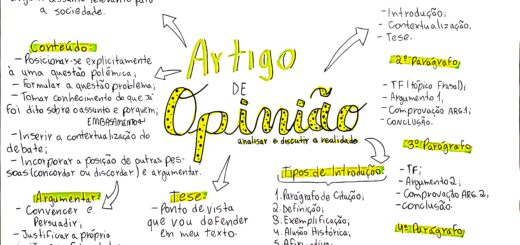 algum assunto relevante para
a sociedade.
Conteúdo:
- Posicionar-se explicitamente
à uma questão polêmica;
- Formular a questão problema;
- Tomar conhecimento do que já
foi dito sobre o assunto e por quem;
EMBASAMENTO
- Inserir a contextualização do
debate;
- Incorporar a posição de outras pes-
soas (concordar ou discordar) e argumentar.
Argumentar:
- Convencer e
Persuadir;
- Justificar a própria
Artigo
DE
Opinião
analisar e discutir a realidade
Tese:
- Ponto de vista
que vou defender
em meu texto.
Tipos de Introdução:
1. Parágrafo de Citação;
2. Definição;
3. Exemplificação;
4. Alusão Histórica;
- Introdução;
- Contextualização.
- Tese.
2º Parágrafo
- TF (tópico Frasal);
- Argumento 1,
- Comprovação ARG.1;
- CONCLUSÃO.
3º Parágrafo
- TF;
- Argumento 2;
- Comprovação ARG. 2,
- conclusão.
4º Parágrafo